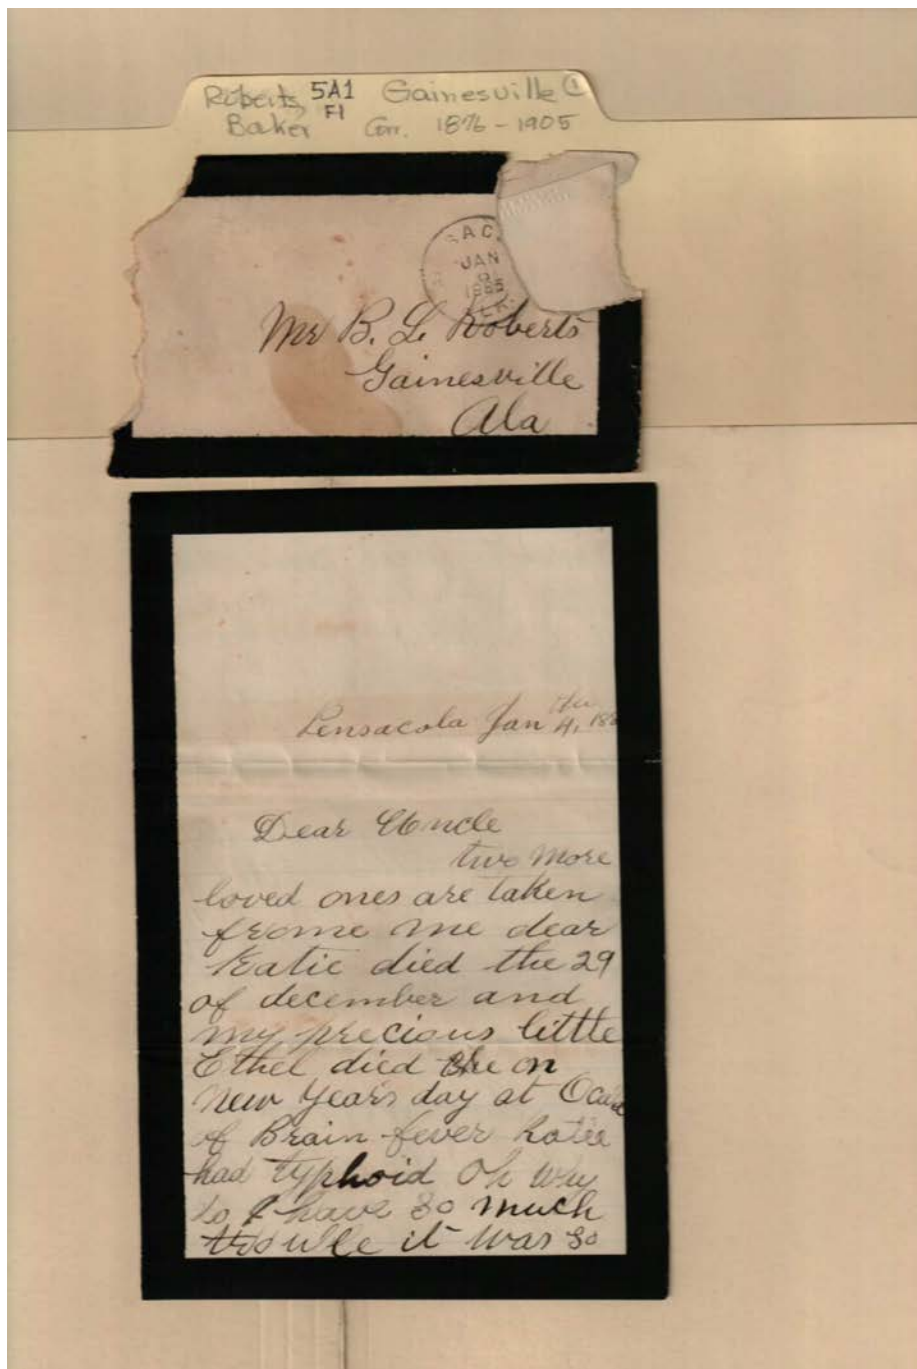 Roberts, 5A1 Gainesville ①
Baker F1 Corr. 1876-1905
SAC
JAN
1885
Mr B. L. Roberts
Gainesville
Ala
Pensacola Jan 4, 188
Dear Uncle
two more
loved ones are taken
frome me dear
Katie died the 29
of december and
my precious little
Ethel died the on
New Years day at
of Brain fever Katie
had typhoid Oh why
do I have so much
trouble it was so